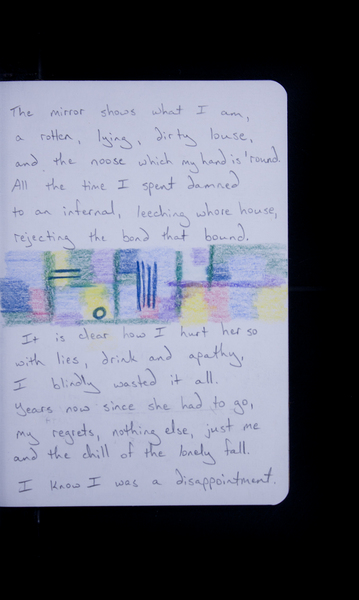 The mirror shows what I am,
a rotten, lying, dirty louse,
and the noose which my hand is 'round.
All the time I spent damned
to an infernal, leeching whore house,
rejecting the bond that bound.
It is clear how I hurt her so
with lies, drink and apathy,
I blindly wasted it all.
Years now since she had to go,
my regrets, nothing else, just me
and the chill of the lonely fall.
I know I was a disappointment.